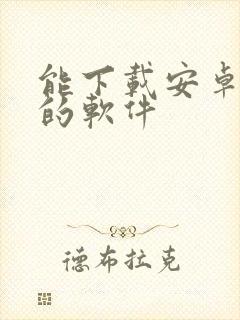 能下載安卓
的軟件
德布拉克